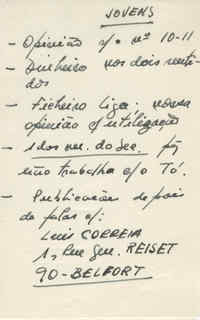 JOVENS
- Opinião s/o nº 10-11
- Dinheiro nos dois senti-
dos
- Ficheiro Liga: nova
opinião s/ utilização
- 1 dos
não trabalha c/o Tó.
- Publicações depois
de falar c/:
Luis CORREIA
1, Rue Gen. REISET
90-BELFORT